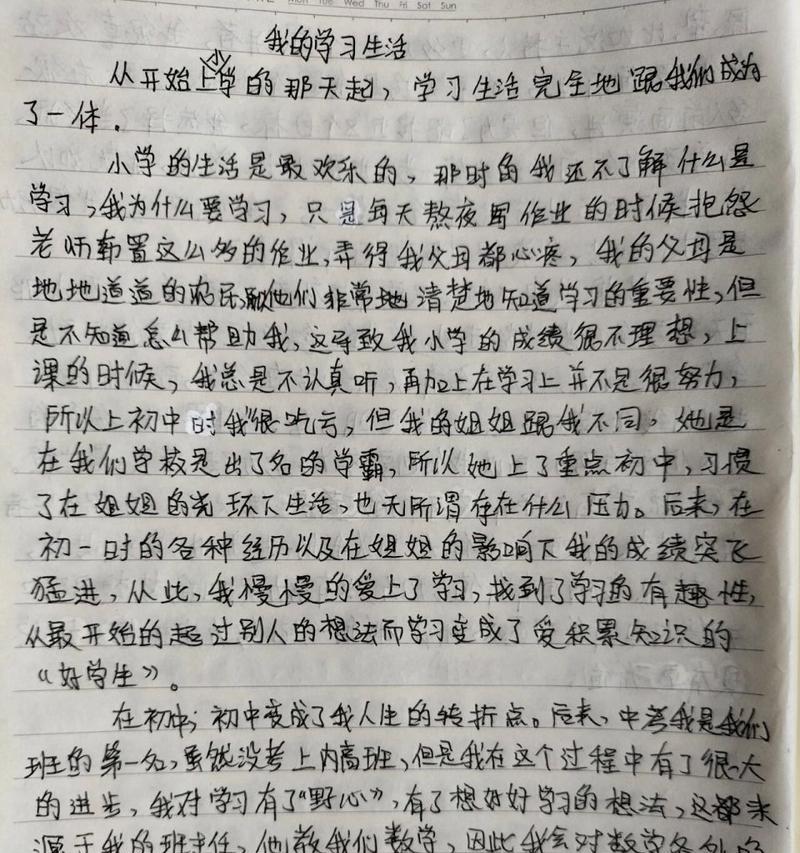 Mon Tue Wed Thu Fri Sat Sun
我的学习生活
从开始上小学的那天起，学习生活完全地跟我们成为
了一体．
小学的生活是最欢乐的，那时的我还不了解什么是
学习，我为什么要学习，只是每天熬夜写作业的时候抱怨
老师布置这么多的作业，弄得我父母都心疼，我的父母是
地地道道的农民，他们非常地清楚地知道学习的重要性，但
是不知道怎么帮助我，这导致我小学的成绩很不理想，上
课的时候，我总是不认真听，再加上在学习上并不是很努力，
所以上初中时我很吃亏，但我的姐姐跟我不同，她是
在我们学校是出了名的学霸，所以她上了重点初中，习惯
了在姐姐的光环下生活，也无所谓存在什么压力。后来，在
初一时的各种经历以及在姐姐的影响下我的成绩突飞
猛进，从此，我慢慢的爱上了学习，找到了学习的有趣性，
从最开始的超过别人的想法而学习变成了爱积累知识的
“好学生”。
在初中；初中变成了我人生的转折点。后来，中考我是我们
班的第一名，虽然没考上内高班，但是我在这个过程中有了很大
的进步，我对学习有了“野心”，有了想好好学习的想法，这都来
源于我的班主任，他教我们数学，因此我会对数学